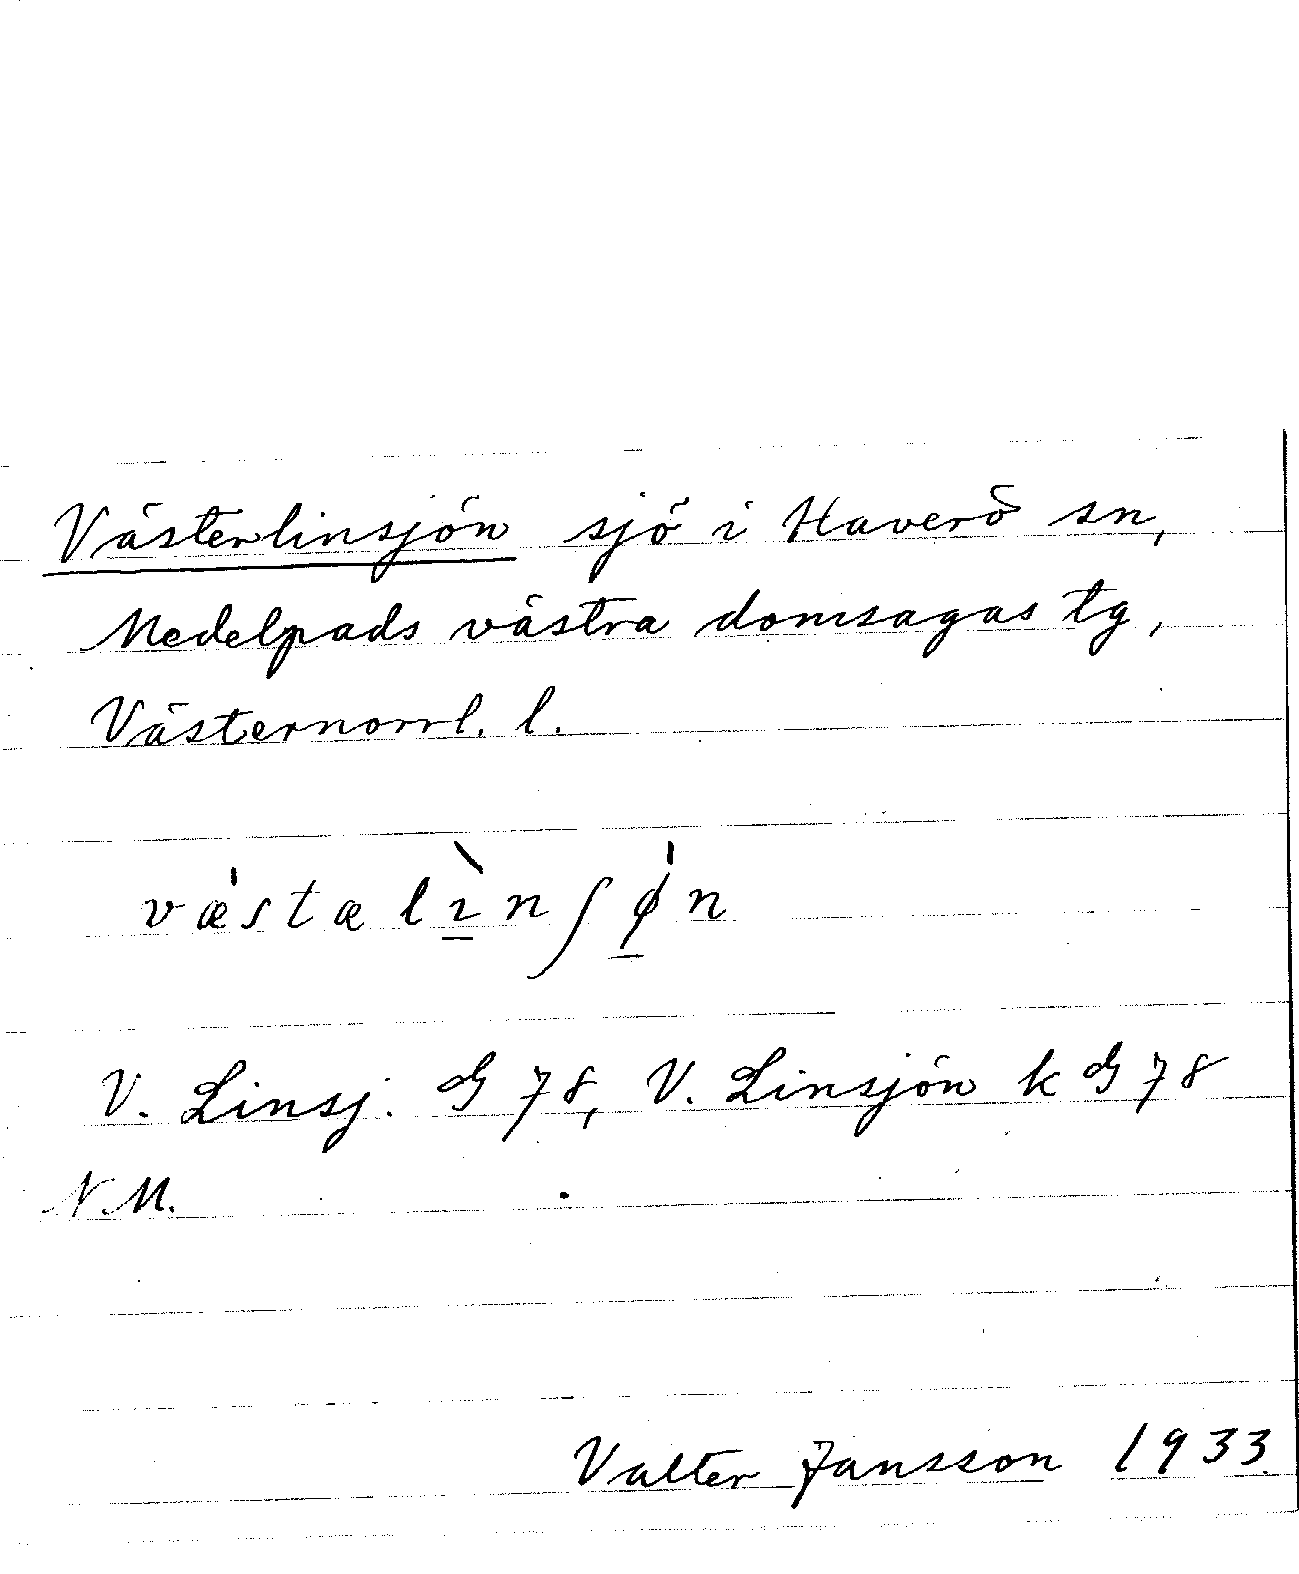 Västerlinsjön sjö i Haverö sn,
Medelpads västra domsagas tg,
Västernorrl. l.
væ̍stælı̠̀nʃø̠̍n
V. Linsj. G 78, V. Linsjön k G 78
N. M.
Valter Jansson 1933